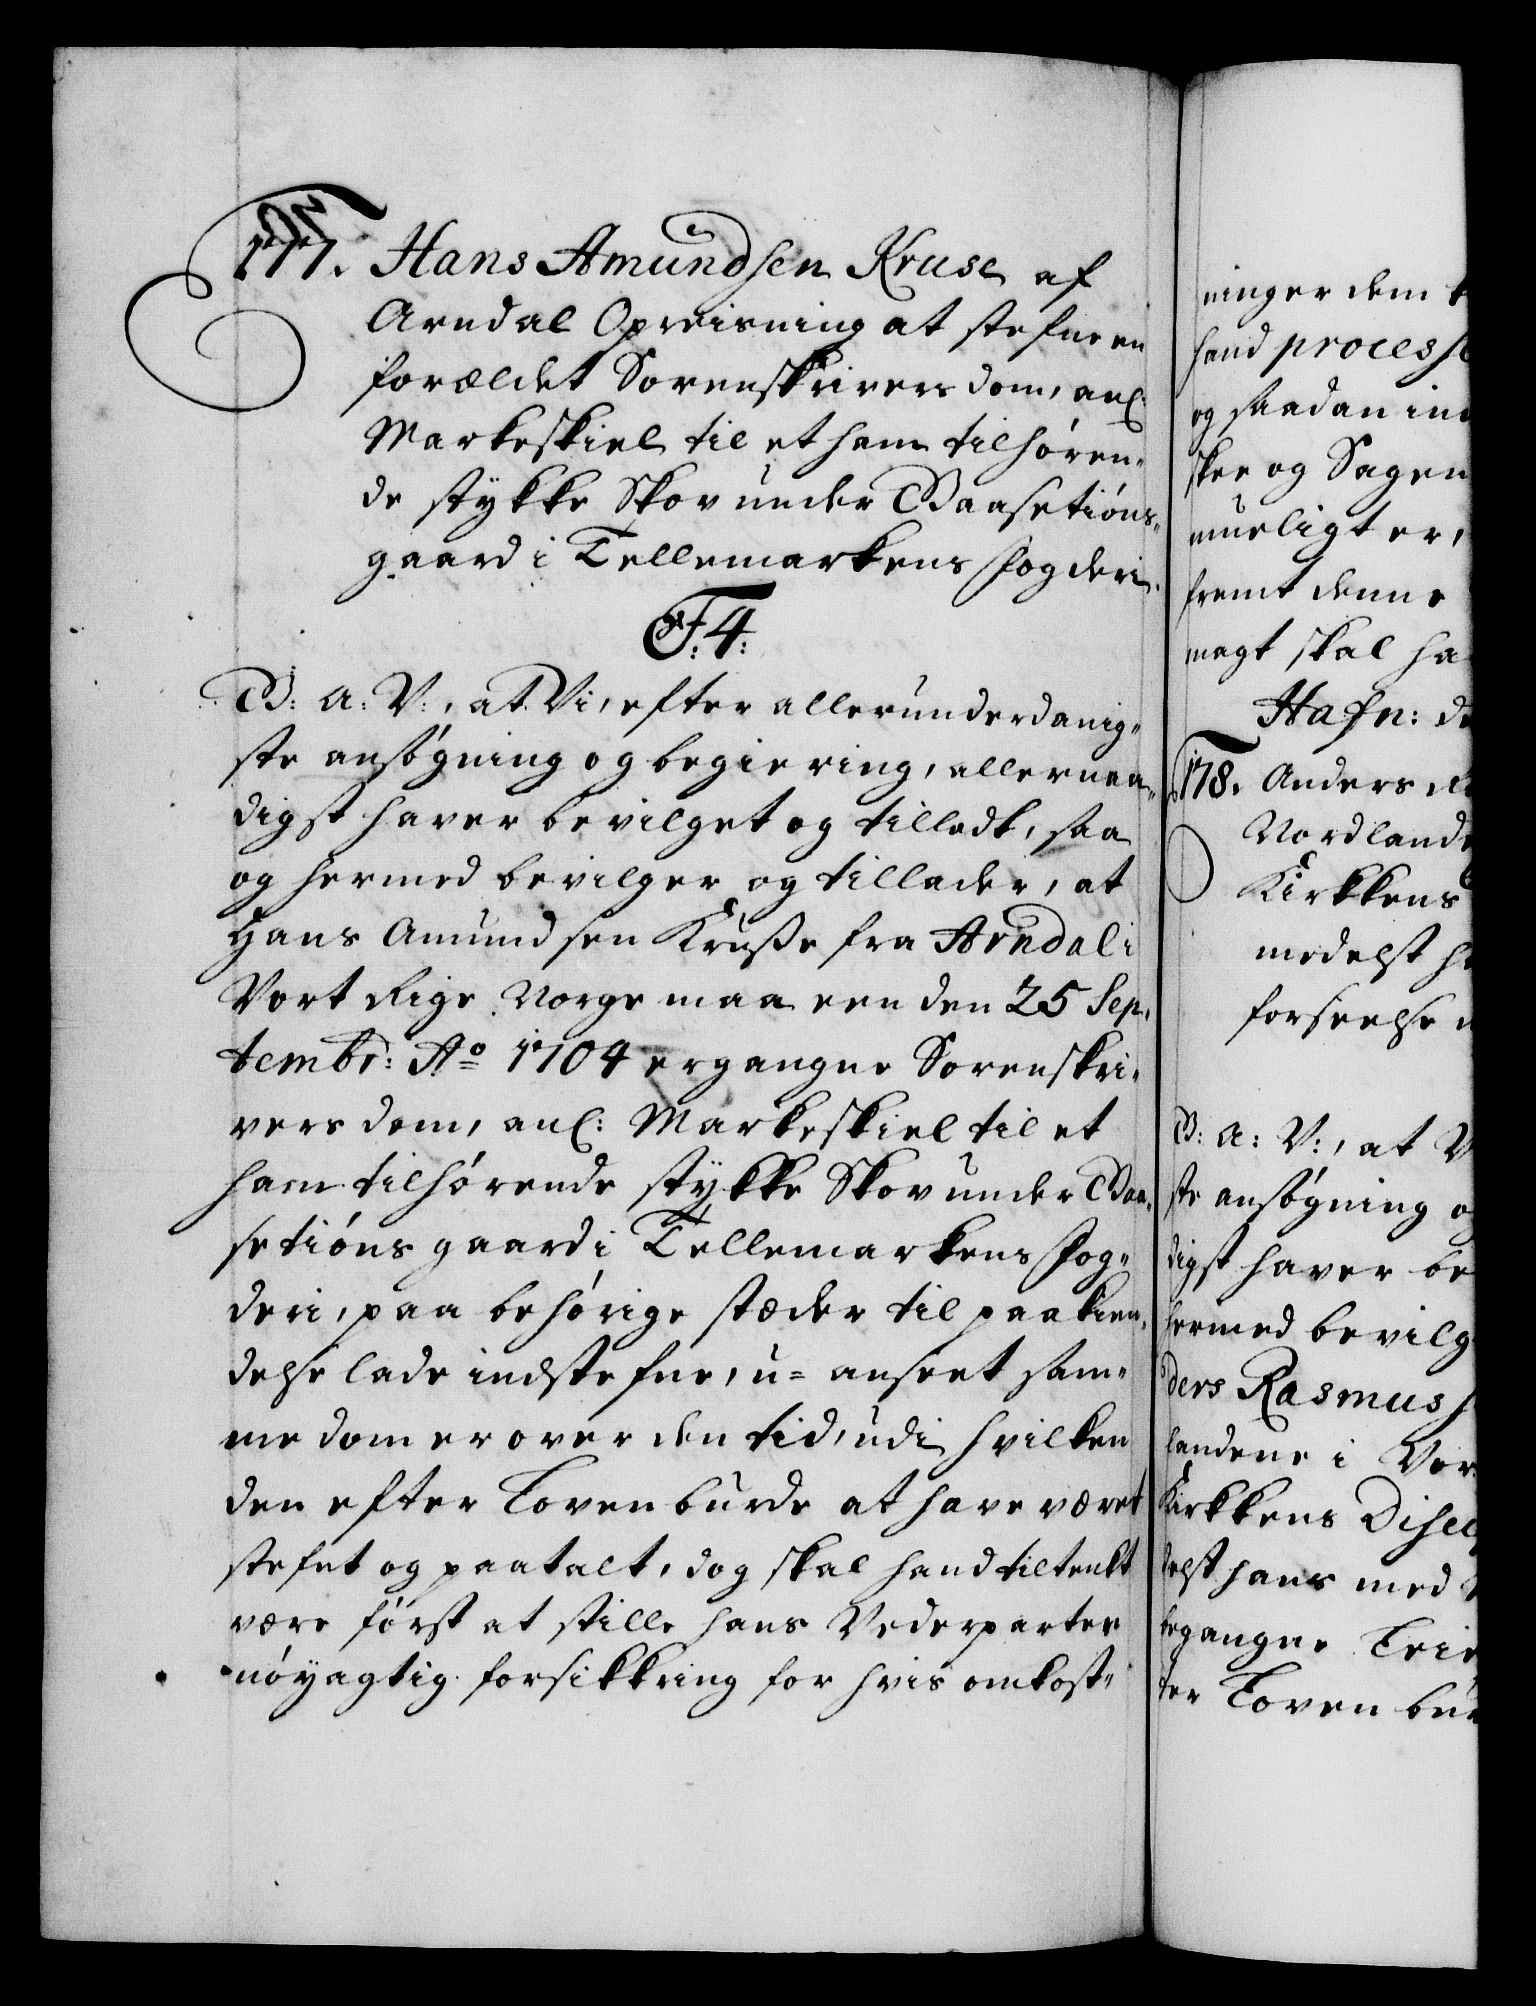 177. Hans Amundsen Kruse af
Arndal Opreisning at stefne en
forældet Sorenskrivers dom, anl:
Markeskiel til et ham tilhøren-
de stykke Skov under Baasetiöns-
gaard i Tellemarkens Fogderi.
F. 4:
B: A: V:, at Vi, efter allerunderdanig-
ste ansøgning og begiering, allernaa-
digst haver bevilget og tilladt, saa
og hermed bevilger og tillader, at
Hans Amundsen Kruse fra Arndal i
Vort Rige Norge maa een den 25 Sep-
tembr: Ao 1704 ergangne Sorenskri-
vers dom, anl: Markeskiel til et
ham tilhørende stykke Skov under Baa-
setiöns gaard i Tellemarkens Fog-
deri, paa behørige stæder til paakien-
delse lade indstefne, u-anseet sam-
me dom er over den tid, udi hvilken
den efter Loven burde at have været
stefnt og paatalt, dog skal hand tiltenkt
være först at stille hans Vederparter
nöyagtig forsikkring for hvis omkost-
ninger dem
hand processe
og saadan
skee og Sagen
mueligt er,
fremt denne
magt skal ha
Hafn: d
178. Anders
Nordlande
Kirkkens
medelst h
forseelse
B: A: V:, at V
ste ansøgning o
digst haver be
hermed bevilg
ders Rasmuss
landene i Vor
Kirkkens Disci
delst hans med
begangne Leie
ter Loven bur